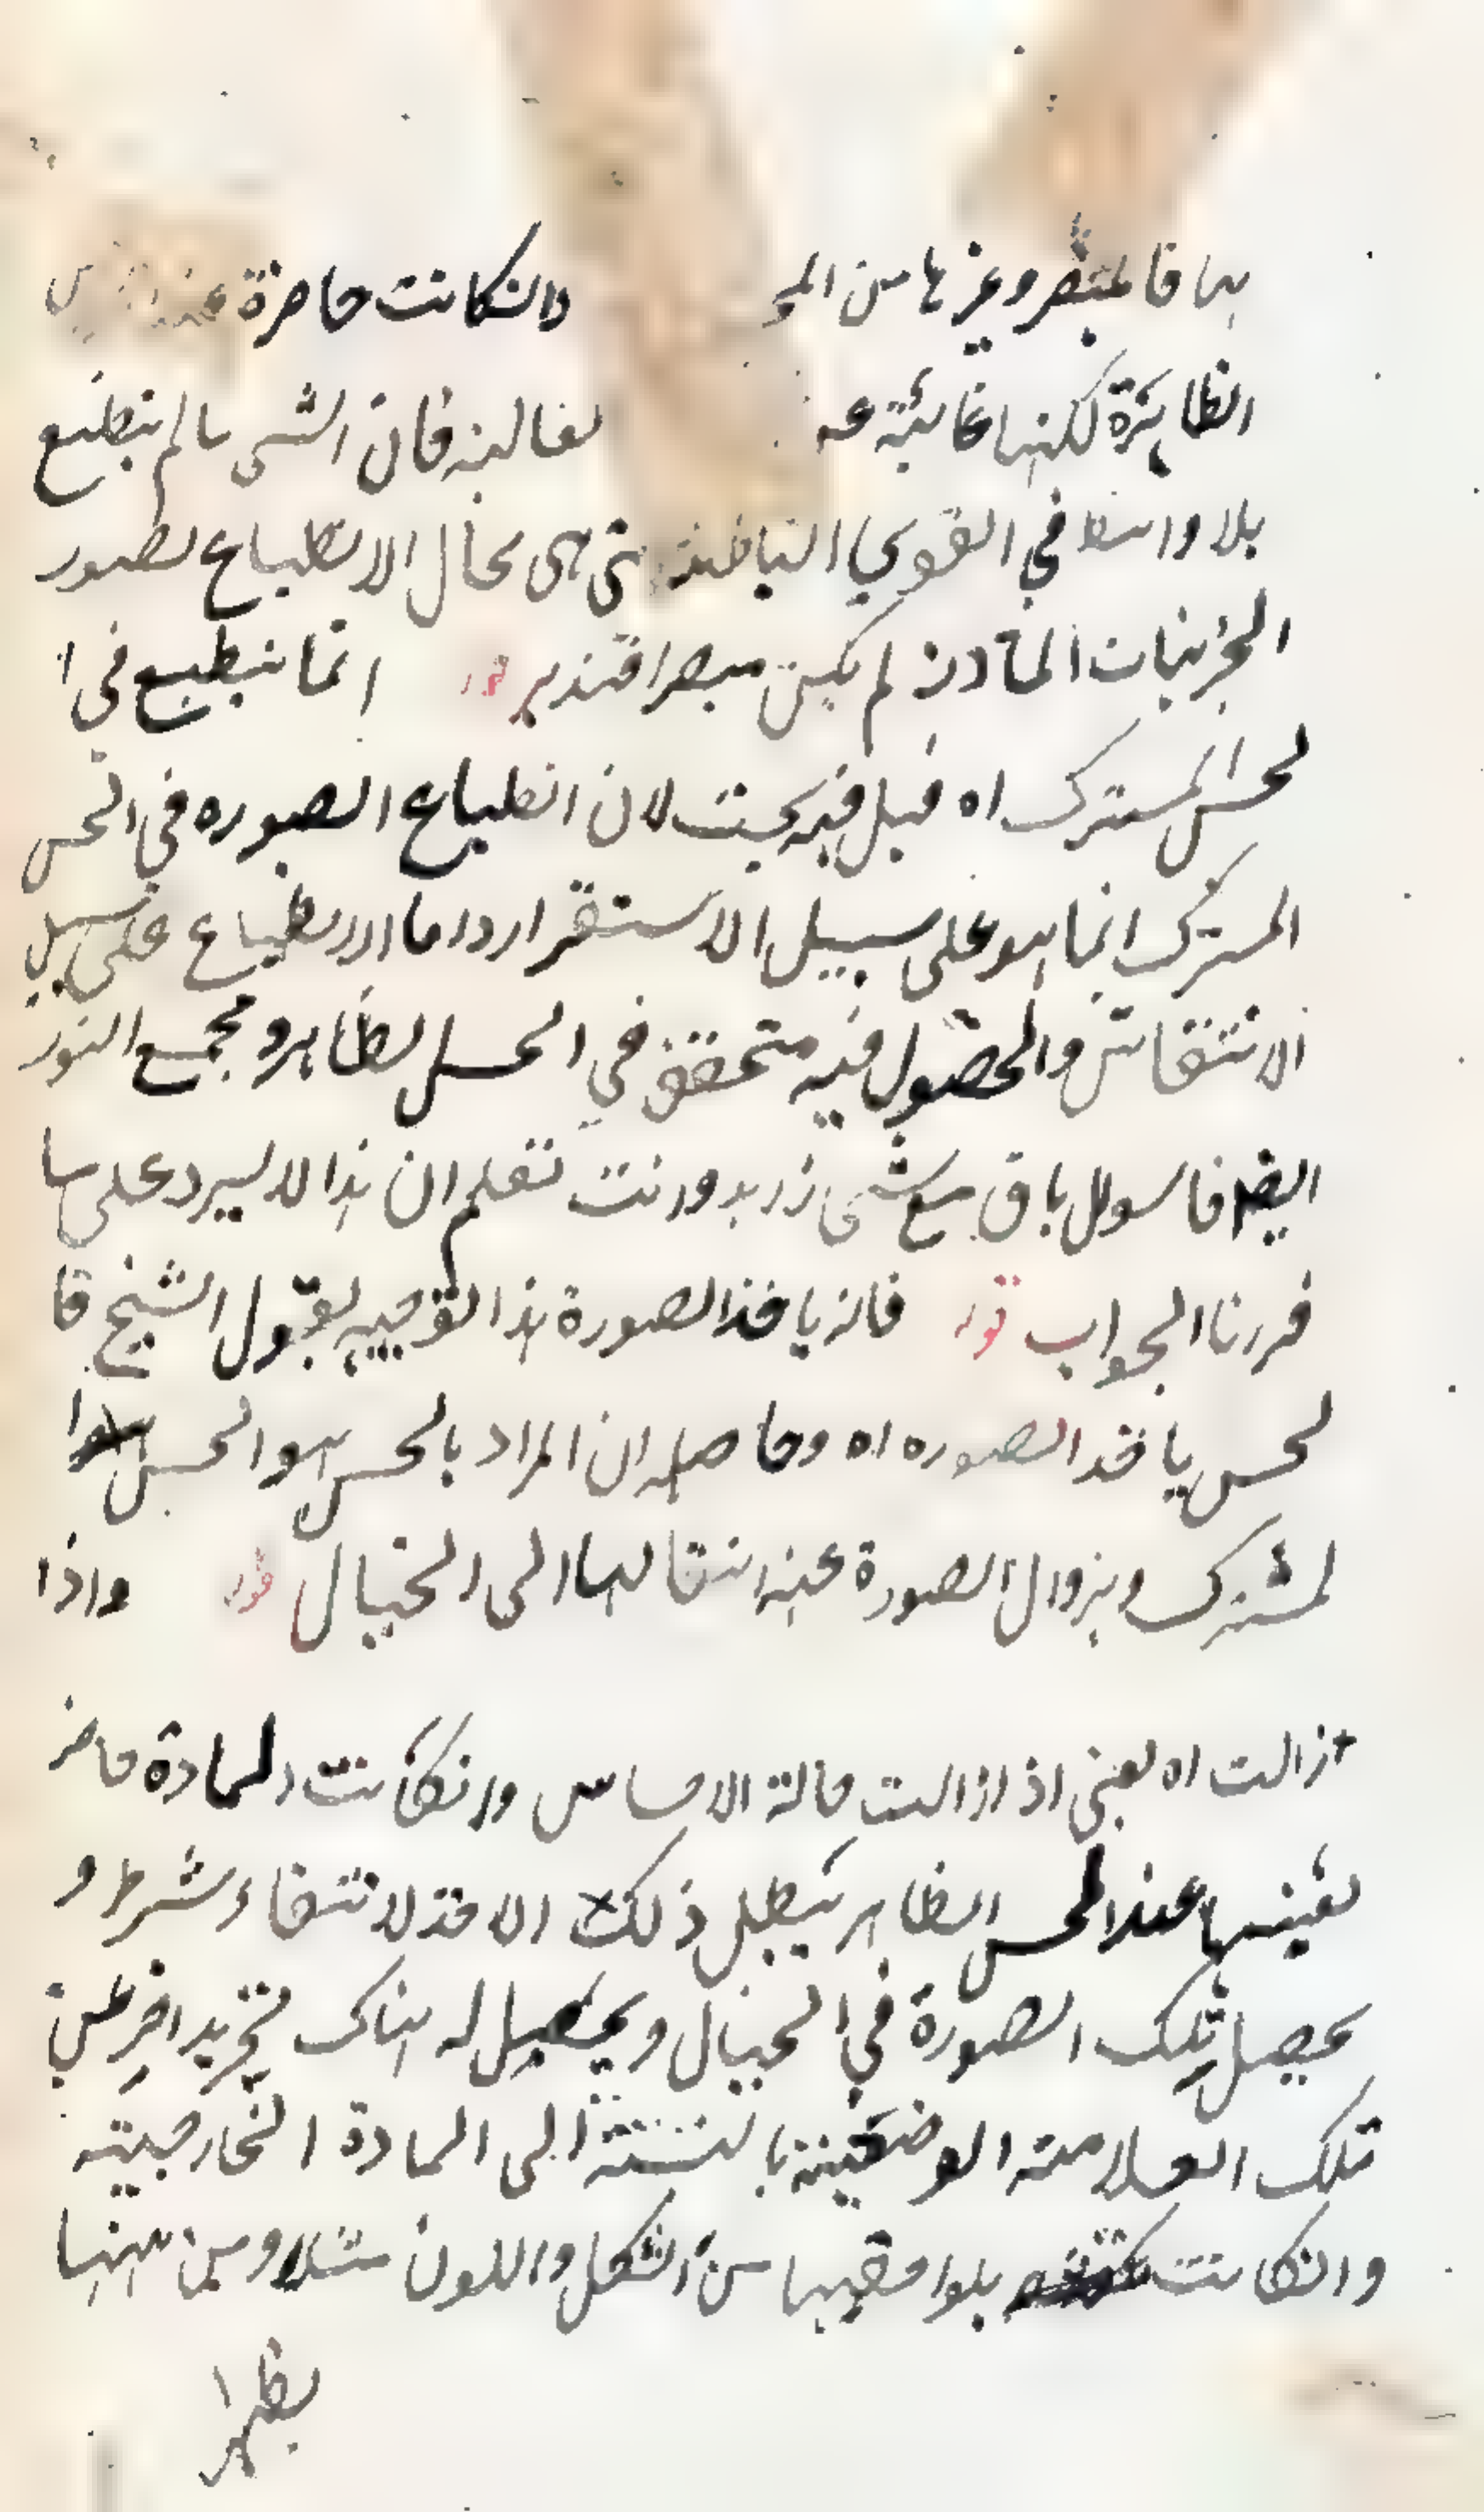 بها فالمبصر وغيرها من المح وانكانت حاضرة عند
الظاهرة لكنها غائبة عن فان الشئ ما لم ينطبع
بلا واسطة في القوي الباطنة التي هى محال الانطباع لصور
الجزئيات المادية لم يكن مبصرا فتدبر قوله انما ينطبع في ا
لحس المشترك اه قيل فيه بحث لان انطباع الصوره في الحس
المشترك انما هو على سبيل الاستقرار واما الانطباع على سبيل
الانتقاش والحصول فيه متحقق في الحس الظاهر ومجمع النور
ايضا فالسوال باق مع شئ زايد وانت تعلم ان هذا لا يرد على ما
قررنا الجواب قوله فانه ياخذ الصورة هذا توجيه لقول الشيخ فا
لحس ياخذ الصوره اه وحاصله ان المراد بالحس هو الحس ا
لمشترك وبزوال الصورة عنه انتقالها الى الخيال قوله واذا
زالت اه يعنى اذا زالت حالة الاحساس وانكانت المادة حاضر
بعينها عند الحس الظاهر يبطل ذلك الاخذ لانتفاء شرطه و
يحصل تلك الصورة في الخيال ويحصل له هناك تجريد اخر عن
تلك العلامة الوضعية بالنسبة الى المادة الخارجية
وانكانت بلواحقها من الشكل واللون مثلا ومن ههنا
يظهر